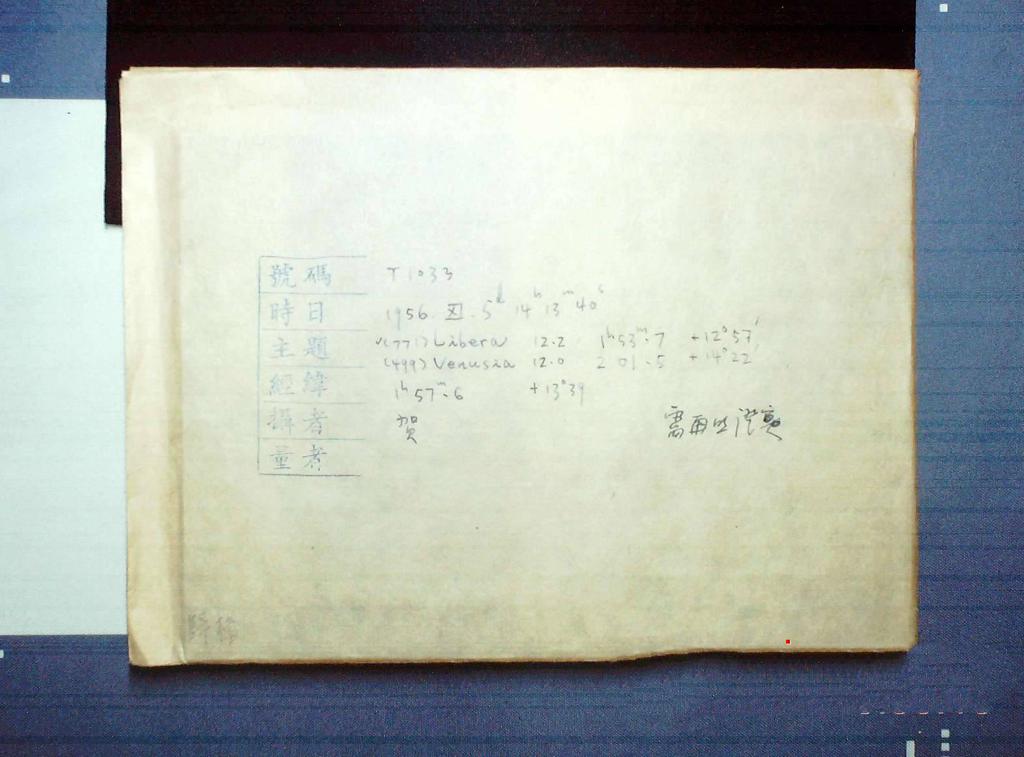 號碼 T1033
時日 1956. XI. 5ᵈ 14ʰ 13ᵐ 40ˢ
主題 √(771) Libera 12.2 1ʰ53ᵐ.7 +12°57′
(499) Venusia 12.0 2 01.5 +14°22′
經緯 1ʰ57ᵐ.6 +13°39
攝者 贺
量者